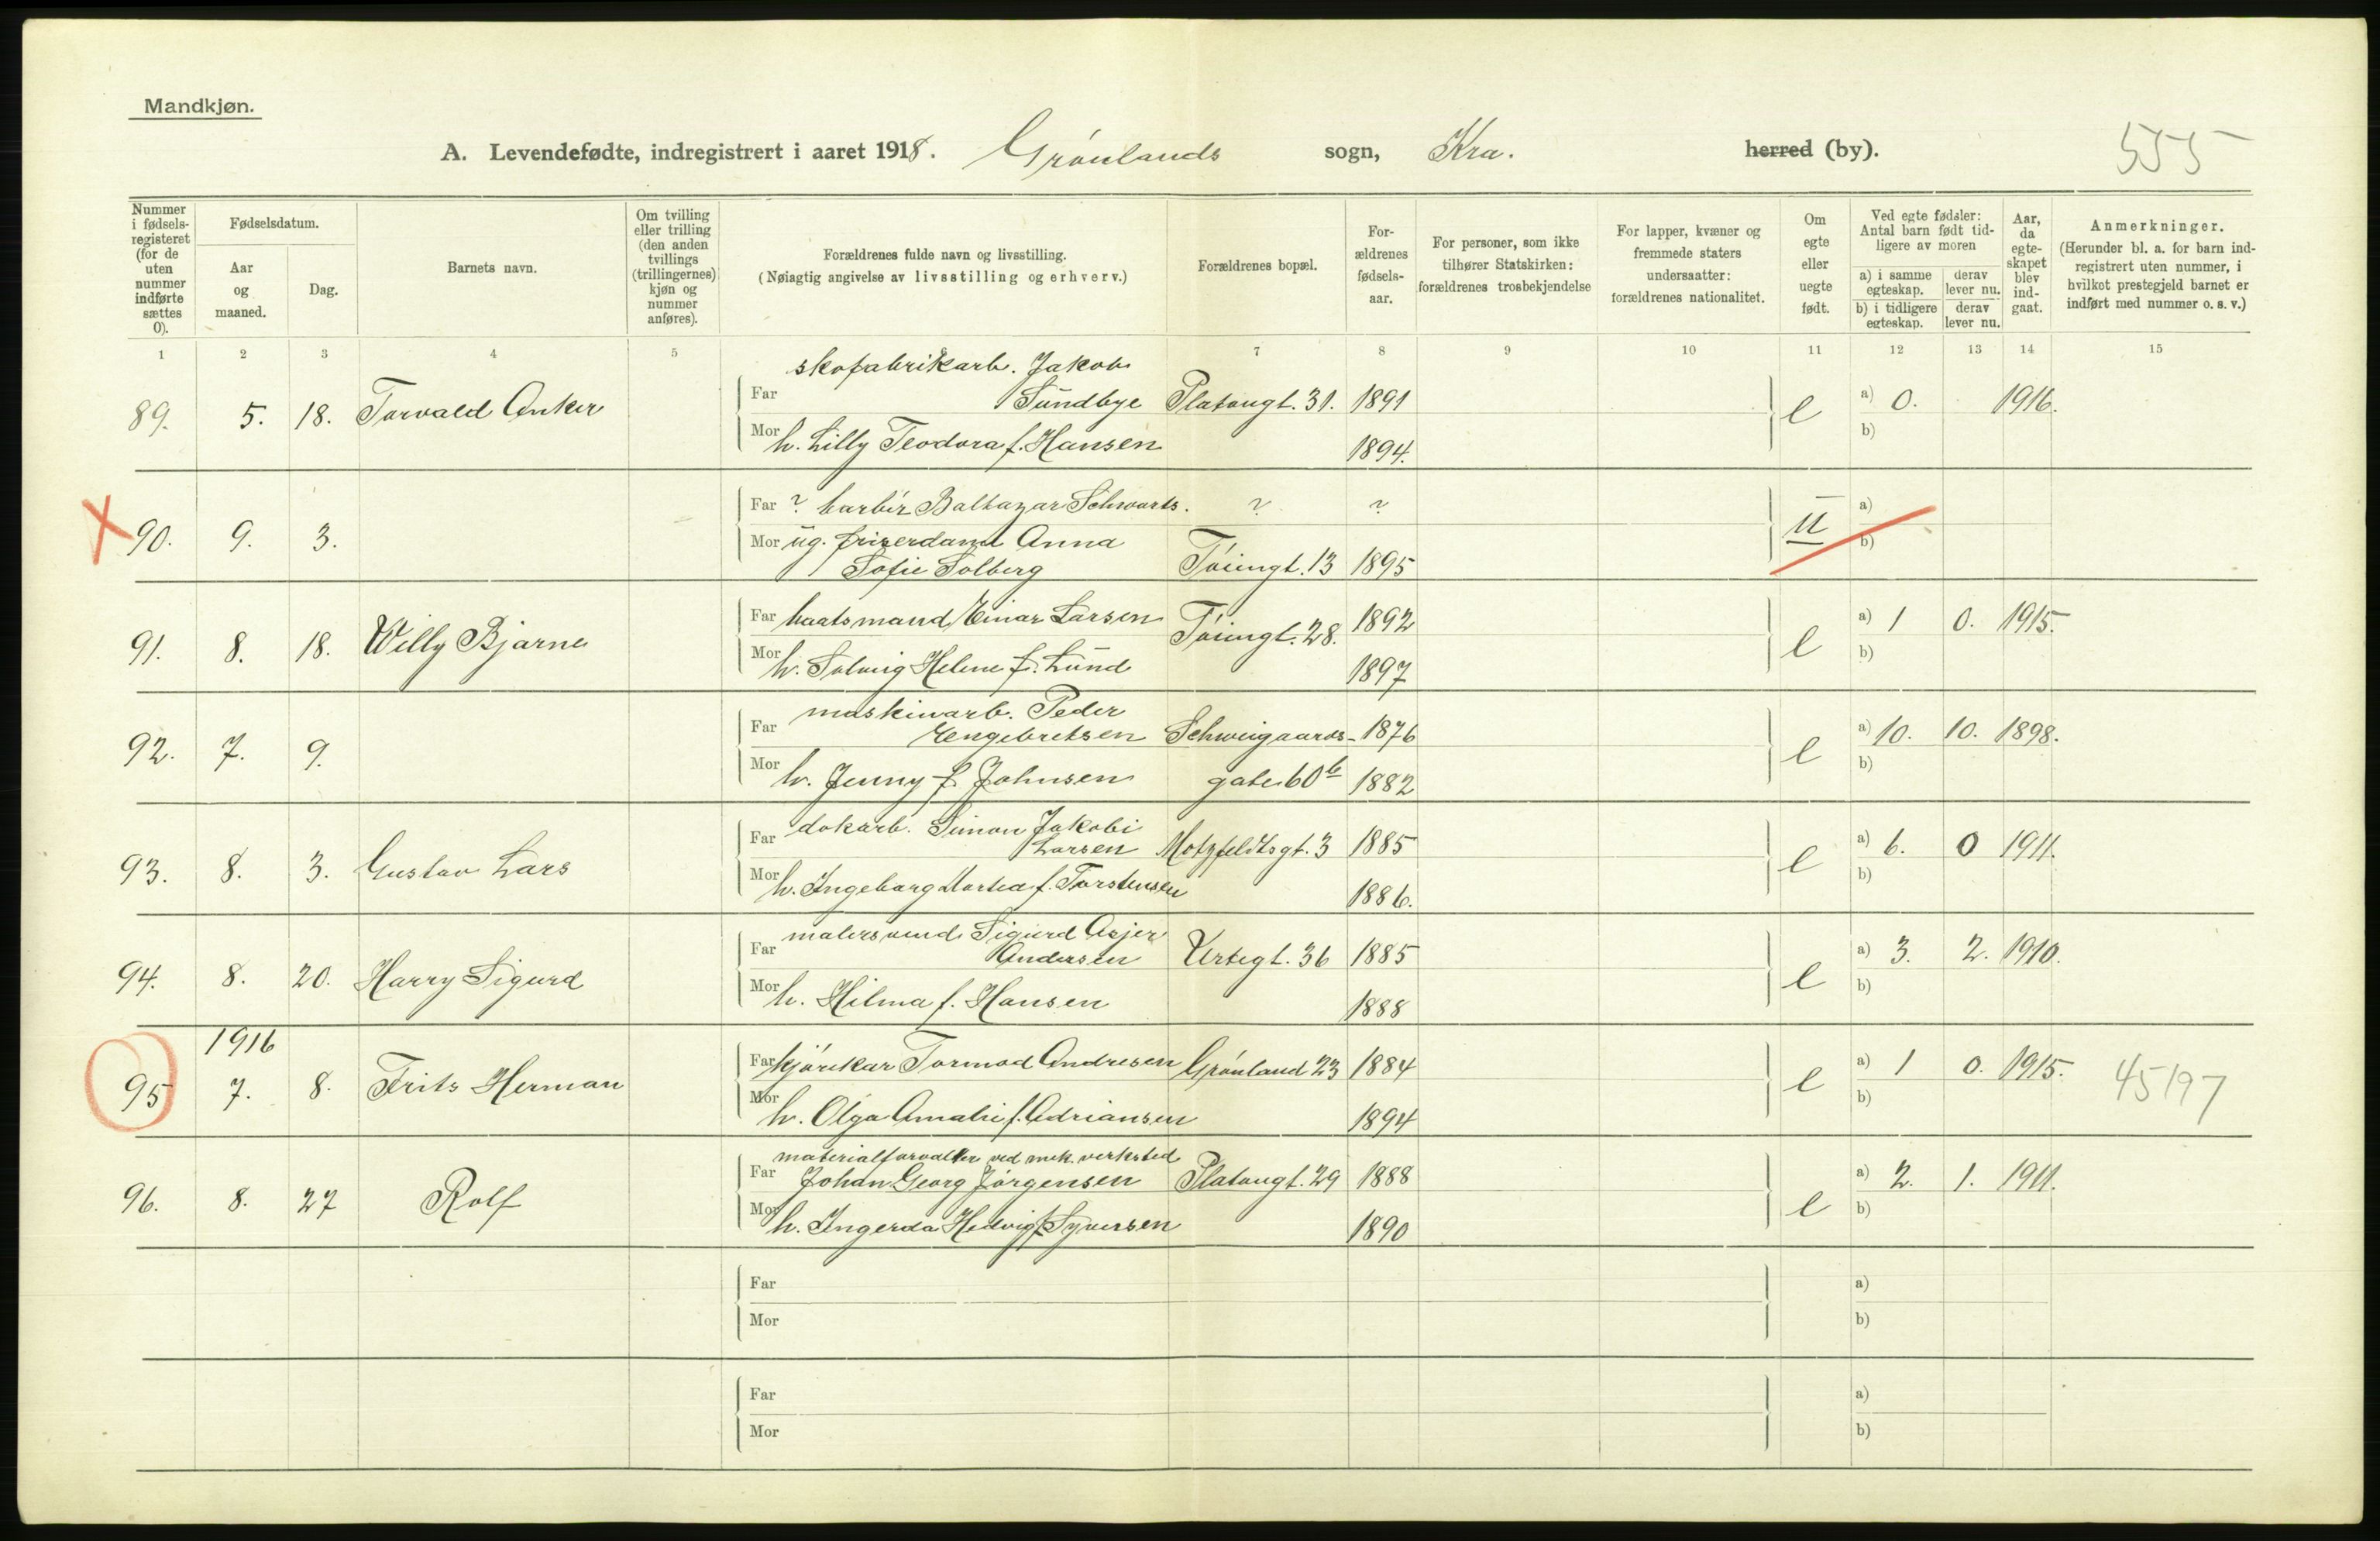 Mandkjøn.
A. Levendefødte, indregistrert i aaret 1918. Grønlands sogn, Kra. herred (by). 555
Nummer i fødselsregisteret (for de uten nummer indførte sættes 0).
Fødselsdatum.
Aar og maaned.
Dag.
Barnets navn.
Om tvilling eller trilling (den anden tvillings (trillingernes) kjøn og nummer anføres).
Forældrenes fulde navn og livsstilling.
(Nøiagtig angivelse av livsstilling og erhverv.)
Forældrenes bopæl.
Forældrenes fødselsaar.
For personer, som ikke tilhører Statskirken: forældrenes trosbekjendelse
For lapper, kvæner og fremmede staters undersaatter: forældrenes nationalitet.
Om egte eller uegte født.
Ved egte fødsler: Antal barn født tidligere av moren
a) i samme egteskap. derav lever nu.
b) i tidligere egteskap. derav lever nu.
Aar, da egteskapet blev indgaat.
Anmerkninger.
(Herunder bl. a. for barn indregistrert uten nummer, i hvilket prestegjeld barnet er indført med nummer o. s. v.)
1 2 3 4 5 6 7 8 9 10 11 12 13 14 15
skofabrikarb. Jakob
89. 5. 18. Torvald Anker Far Sundbye Platougt. 31. 1891 e a) 0. 1916.
Mor h. Lilly Teodora f. Hansen 1894. b)
Far ? barbér Baltazar Schwarts. ? ? a)
90. 9. 3. Mor ug. friserdame Anna u b)
Sofie Solberg Tøiengt. 13 1895
Far baatsmand Einar Larsen Tøiengt. 28. 1892 a) 1 0. 1915.
91. 8. 18. Willy Bjarne e
Mor h. Solveig Helene f. Lund 1897 b)
maskinarb. Peder
Far Engebretsen Schweigaards- 1876 a) 10. 10. 1898.
92. 7. 9. e
Mor h. Jenny f. Johnsen gate 60b 1882 b)
dokarb. Simon Jakobi
Far Larsen Motzfeldtsgt. 3 1885 a) 6. 0 1911.
93. 8. 3. Gustav Lars e
Mor h. Ingeborg Martea f. Torstensen 1886. b)
malersvend Sigurd Asjer
Far Andersen Urtegt. 36 1885 a) 3. 2. 1910.
94. 8. 20. Harry Sigurd e
Mor h. Hilma f. Hansen 1888 b)
1916
Far kjørekar Tormod Andresen Grønland 23 1884 a) 1 0. 1915.
95 7. 8. Frits Herman e 45197
Mor h. Olga Amalie f. Adriansen 1894 b)
materialforvalter ved mek. verksted
Far Johan Georg Jørgensen Platougt. 29 1888 a) 2. 1. 1911.
96. 8. 27 Rolf e
Mor h. Ingerda Hedvig f. Syversen 1890 b)
Far a)
Mor b)
Far a)
Mor b)